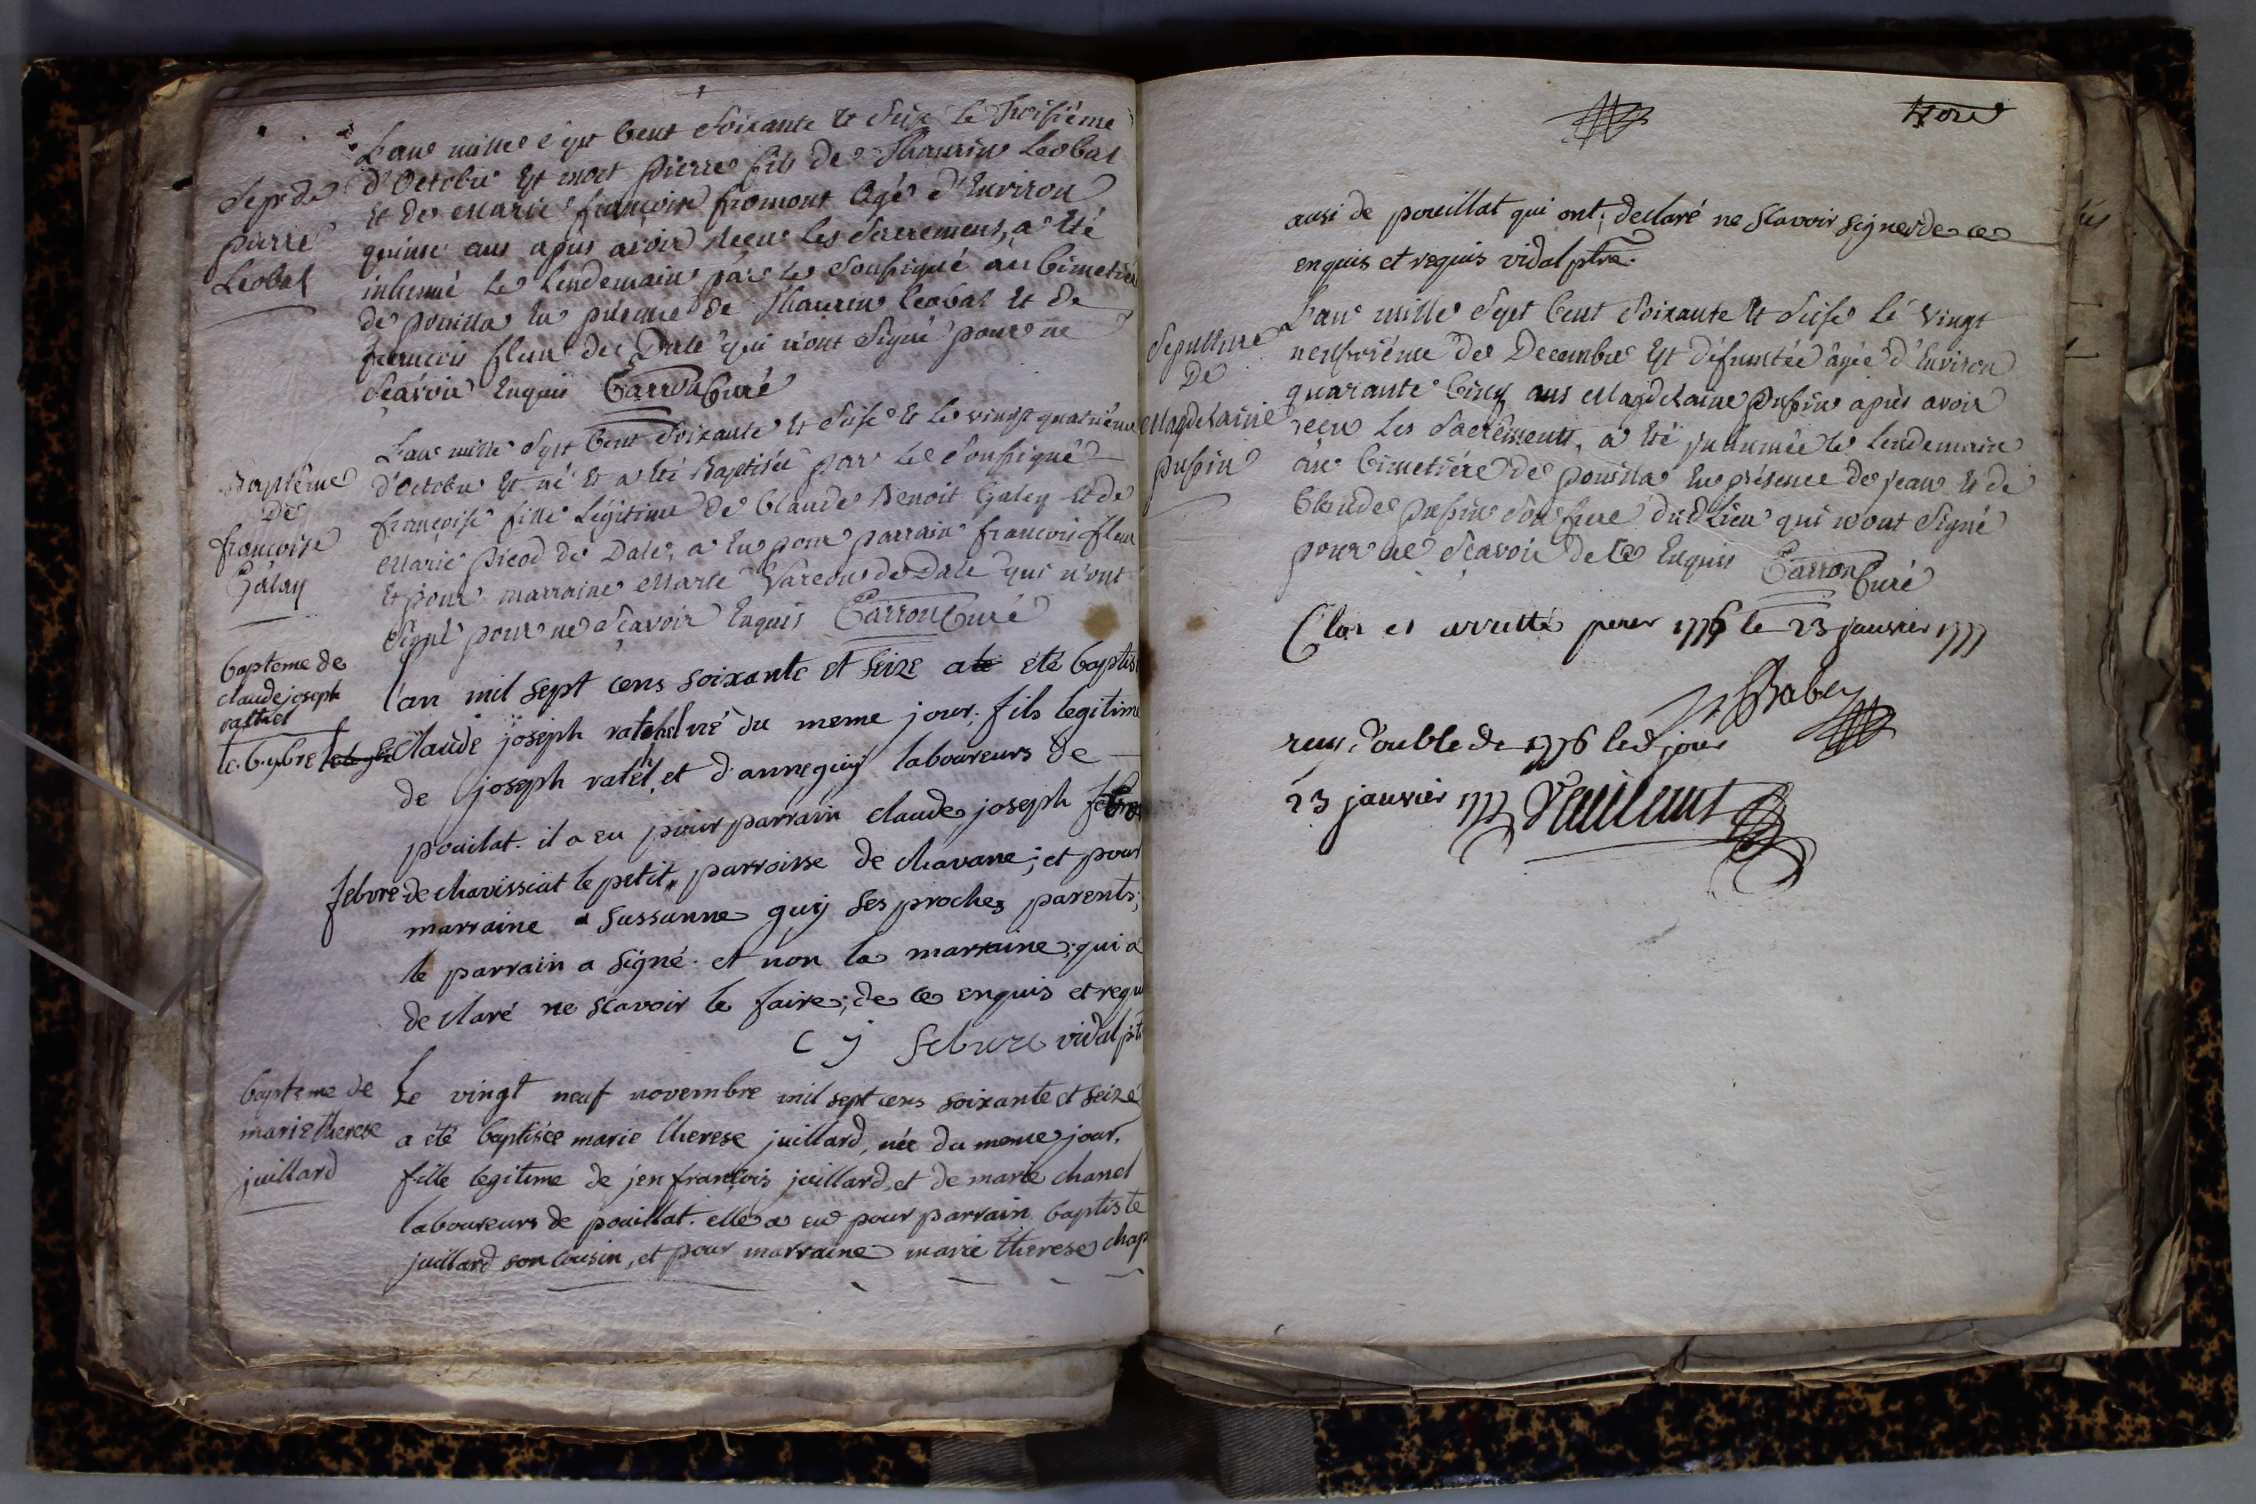 L'an mille sept Cent Soixante et Seise le troisiéme
d'Octobre Est mort pierre fils de Thaurin Léobal
Sepr de
et de Marie françoise fromont Agé d'Environ
pierre
quinse ans apres avoir reçeu les Sacremens, a Eté
Léobal
inhumé le Lendemain par le Soussigné au Cimetiére
de pouilla En présence de Thaurin Leobal Et de
françois fleur de Dale qui n'ont Signé pour ne
Sçavoir Enquis Carron Curé
L'an mille Sept Cent Soixante Et Seise Et le vingt quatriéme
Baptême
d'Octobre Est né Et a Eté Baptisée par le Soussigné
De
françoise fille Légitime de Claude Benoit Galey Et de
françoise
Marie picod de Dale, a Eu pour parrain françois fleur
Galay
Et pour marraine Marie Vareou de Dale qui n'ont
Signé pour ne Sçavoir Enquis Carron Curé
bapteme de
claude joseph
ratthel
le 6 xbre
l'an mil sept cens soixante et seize a été baptisé
Claude joseph ratthel né du meme jour, fils legitime
de joseph ratel, et d'anne guÿ laboureurs de
pouilat. il a eu pour parrain claude joseph febvre
febvre de chavissiat le petit, parroisse de chavane; et pour
marraine sussanne guÿ ses proches parents;
le parrain a signé. et non la marraine, qui a
declaré ne scavoir le faire; de ce enquis et requ
C j febvre vidal ptr
bapteme de
marie therese
juillard
Le vingt neuf novembre mil sept cens soixante et seize
a été baptisée marie therese juillard, née du meme jour,
fille legitime de jen françois juillard, et de marie chanel
laboureurs de pouillat. elle a eu pour parrain baptiste
juillard son cousin, et pour marraine marie therese chap
ausi de pouillat qui ont, declaré ne scavoir signer de ce
enquis et requis vidal ptre.
L'an mille Sept Cent Soixante Et Seise Le Vingt
Sepulture
neufviéme de Decembre Est défuntée âgée d'Environ
De
quarante Cinq ans Magdelaine pupin après avoir
Magdelaine
reçeu Les Sacrêments, a Eté Inhumée le Lendemain
pupin
au Cimetiére de pouilla En présence de jean Et de
Claude pupin Son frere dud Lieu qui n'ont Signé
pour ne Sçavoir de Ce Enquis Carron Curé
Clos et arretté pour 1776 le 23 janvier 1777
Babey
reçu, Double de 1776 led jour
23 janvier 1777 Vaillant